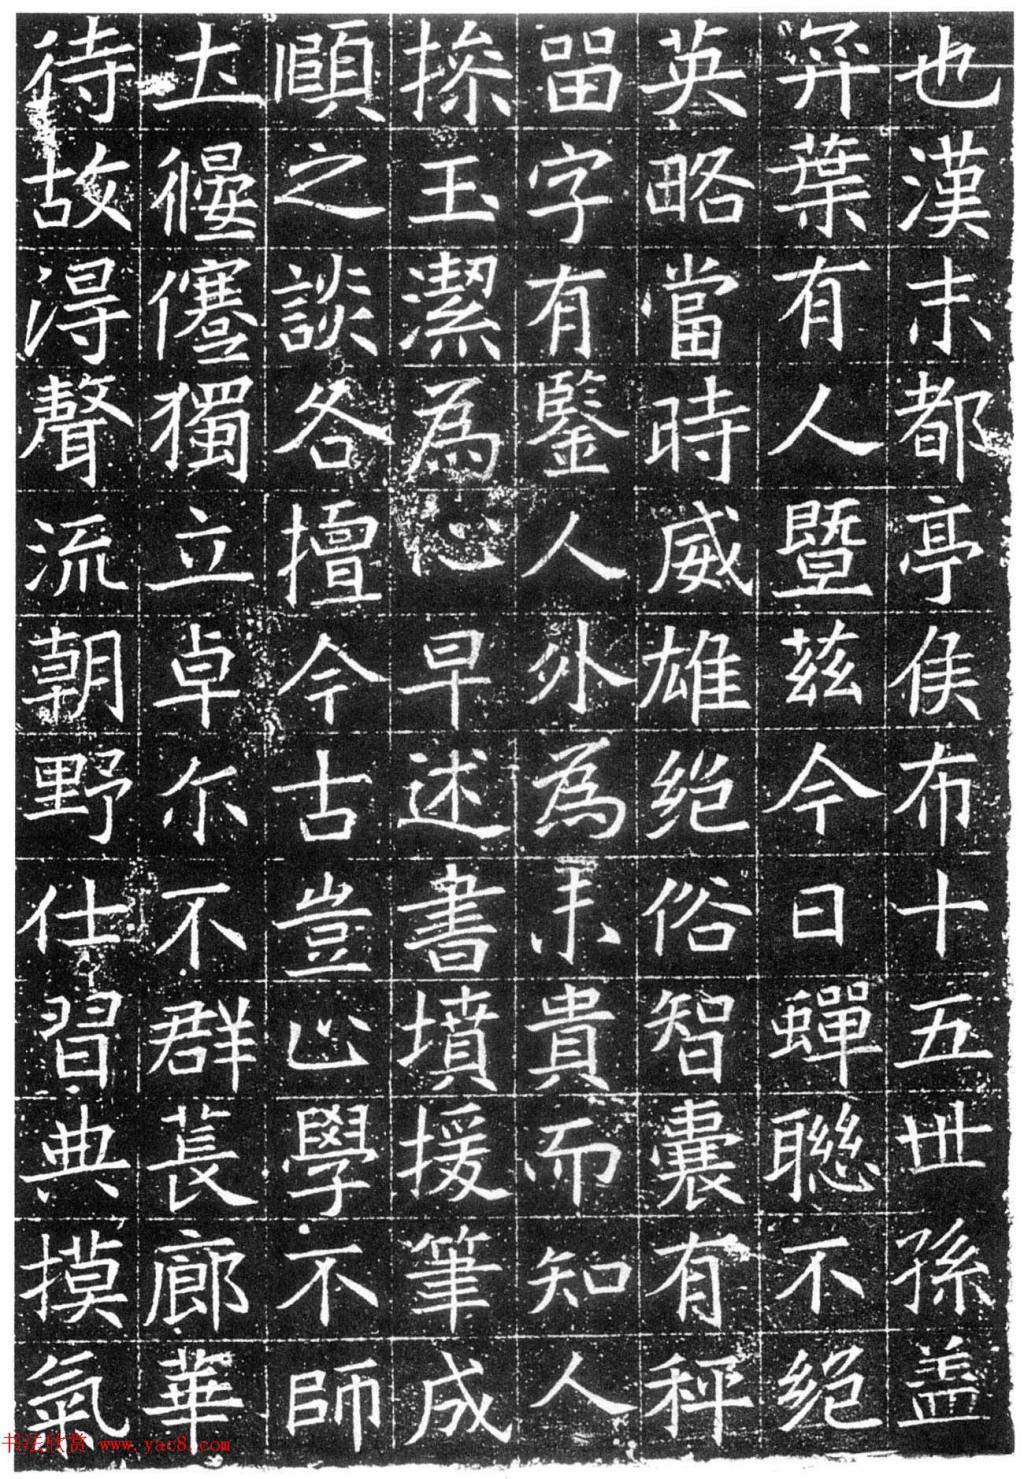 也漢末都亭侯布十五世孫盖
弈葉有人暨茲今日蟬聯不絕
英略當時威雄絕俗智囊有秤
畱字有鑒人外為未貴而知人
摻玉潔為心早述書墳援筆成
願之談各擅今古豈心學不師
士偃蹇獨立卓尔不群萇廊華
待故得聲流朝野仕習典摸氣
书法欣赏 www.yac8.com